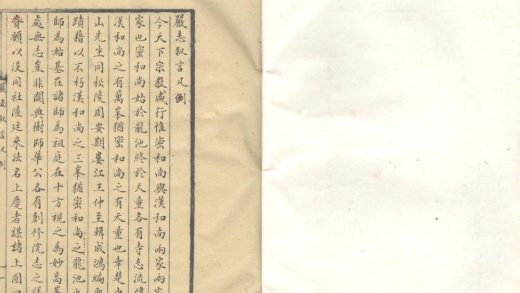 嚴志叙言凡例
今天下宗教盛行惟密和尚與漢和尚兩家兩
家也密和尚始於龍池終於天童各有寺志流傳
漢和尚之有萬峯猶密和尚之有天童也幸楚
山先生同松陵周安期婁江王仲至輯成鴻編
蹟藉以不朽漢和尚之三峯猶密和尚之龍池
師為始基在諸師為祖庭在十方視之為妙高
處無志豈非闕典樹師華公各有創修院志之
賫願以沒同社陸廷來法名上慶者謀諸上圓
嚴志叙言凡例 一